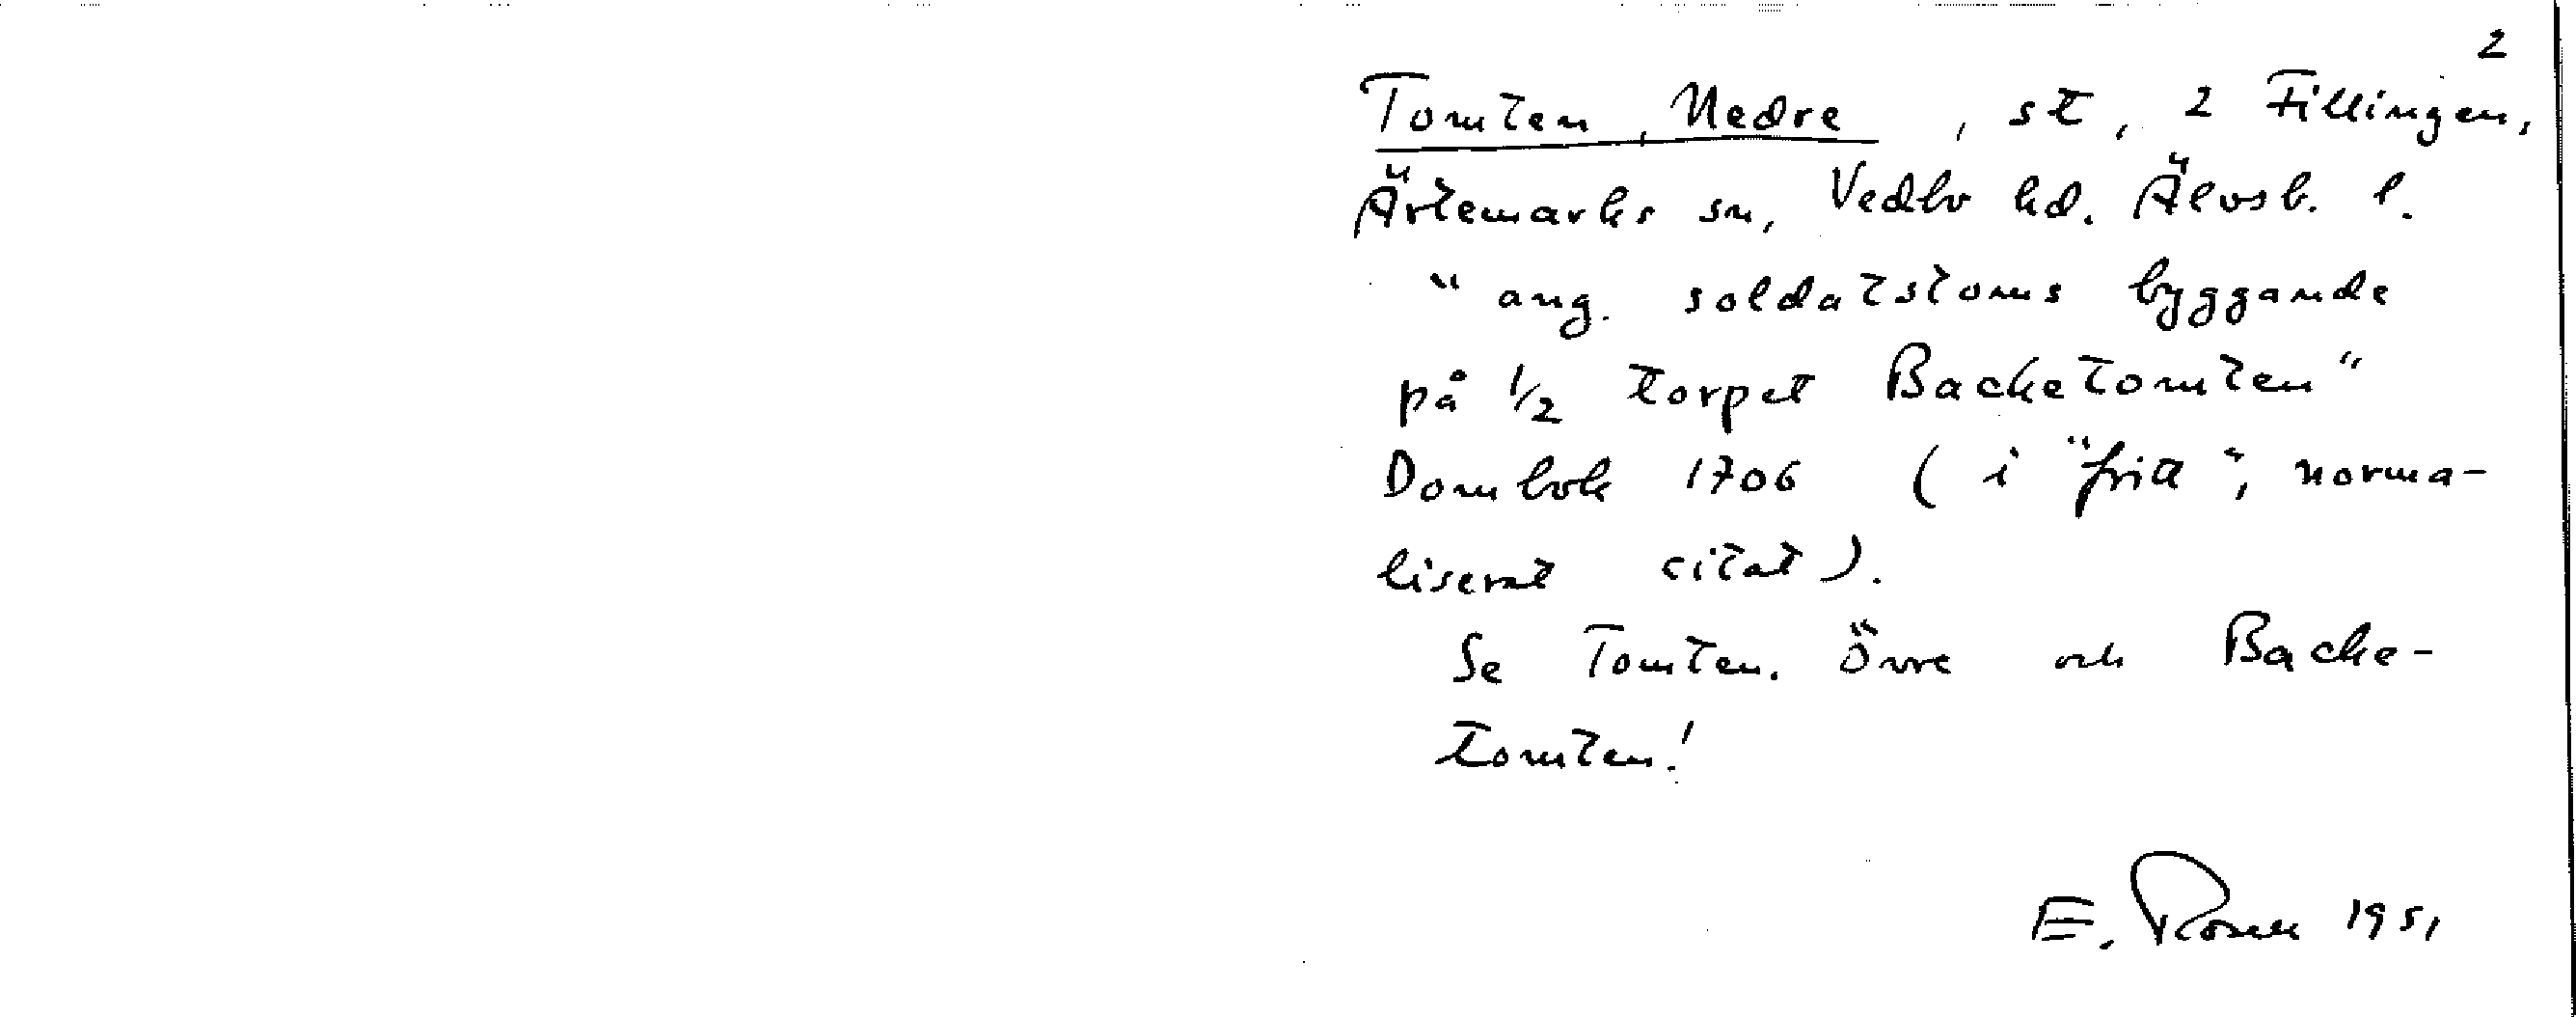 2
Tomten, Nedre, st, 2 Fillingen,
Ärtemarks sn, Vedbo hd. Älvsb. l.
"ang. soldatstoms byggande
på 1/2 torpet Backetomten"
Dombok 1706 (i "fritt", norma-
liserat citat).
Se Tomten. Övre och Backe-
tomten!
E. Rosell 1951